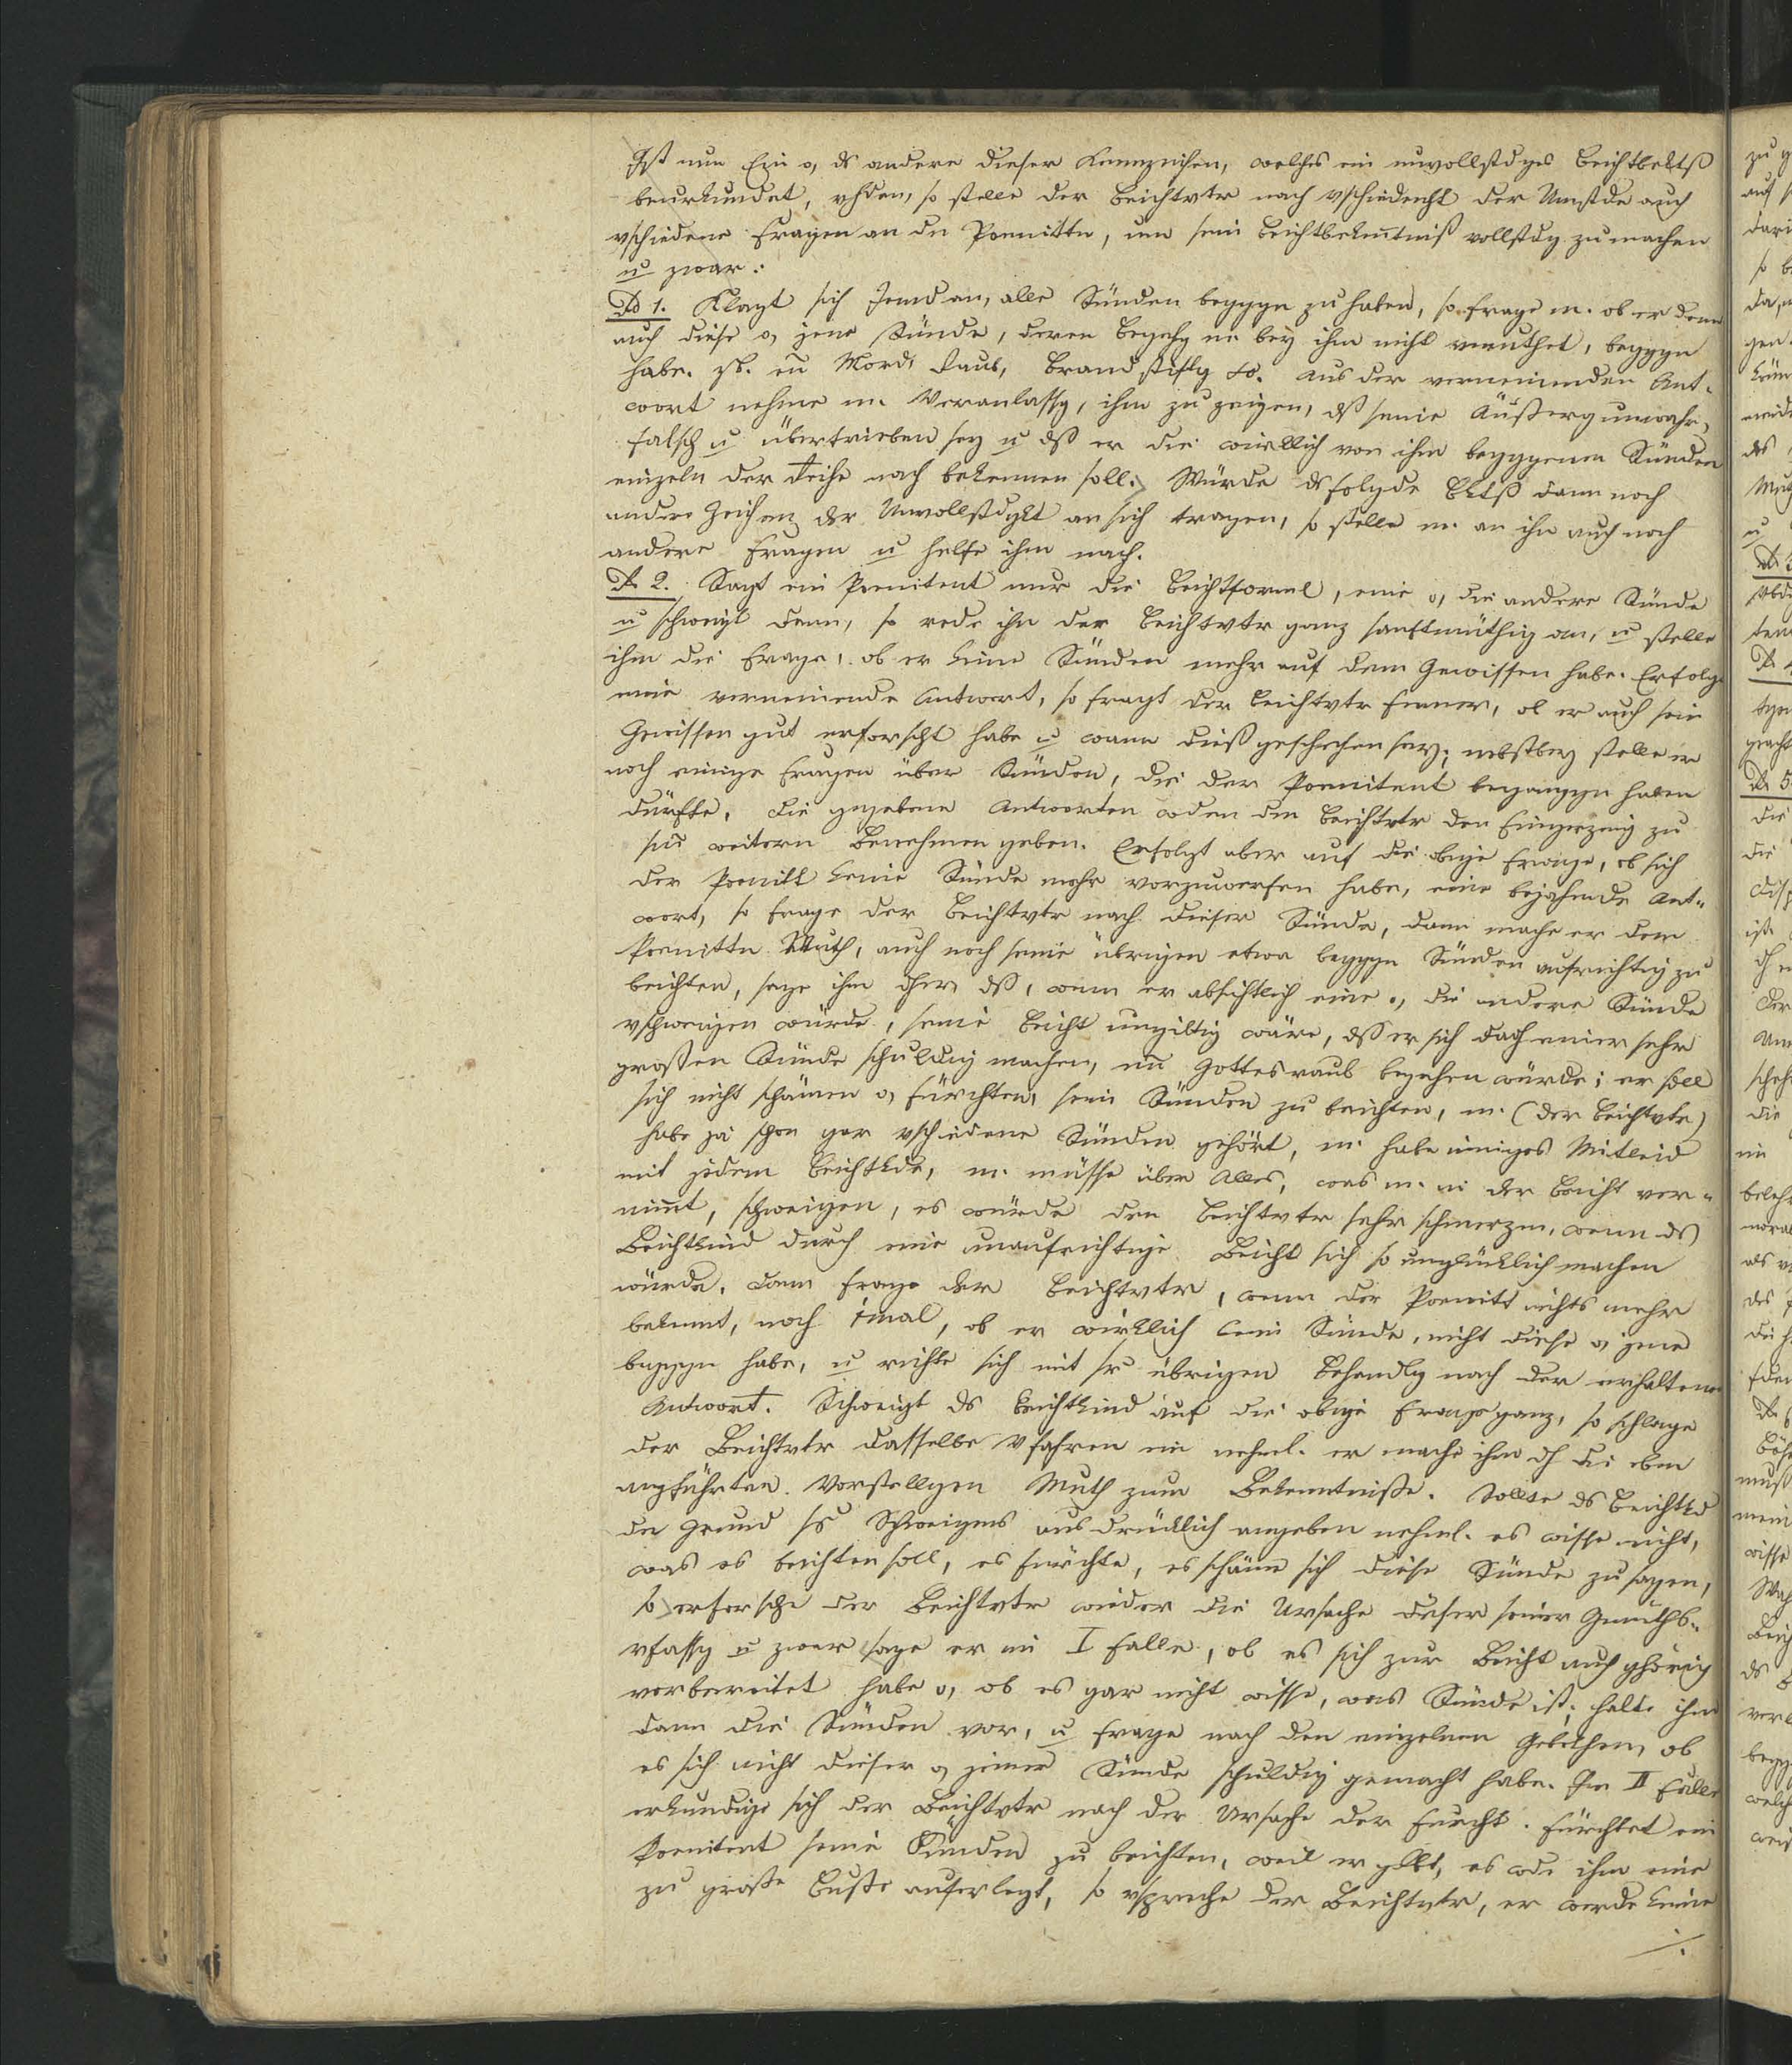 Ist nun Ein o, ds andere dieser Kennzeichen, welches ein unvollstdges Beichtbektß
beurkundet, vhden, so stelle der Beichtvtr nach vschiedenht der Umstde auch
vschiedene Fragen an dn Poenittn, um sein Beichtbekenntniß vollstdg zu machen
u zwar:
Ad 1. Klagt sich Jemd an, alle Sünden beggyn zu haben, so frage m. ob er denn
auch diese o, jene Sünde, deren Begehg m. bey ihm nicht vmuthet, beggyn
habe. zb. en Mord, Raub, Brandstiftg &. Aus der verneinenden Ant-
wort nehme m. Veranlassg, ihm zu zeigen, dß seine Äußerg unwahr,
falsch u übertrieben sey u dß er die wirklich von ihm beggygenen Sünden
einzeln der Reihe nach bekennen soll. Würde ds folgde Bktß dann noch
andere Zeichen der Unvollstdgkt an sich tragen, so stelle m. an ihn auch noch
andere Fragen u helfe ihm nach.
Ad 2. Sagt ein Poenitent nur die Beichtformel, eine o, die andere Sünde
u schweigt dann, so rede ihn der Beichtvtr ganz sanftmüthig an, u stelle
ihm die Frage, ob er keine Sünden mehr auf dem Gewissen habe. Erfolgt
eine verneinende Antwort, so fragt der Beichtvtr ferner, ob er auch sein
Gewissen gut erforscht habe u wann dieß geschehen sey; nebstbey stelle er
noch einige Fragen über Sünden, die der Poenitent begangyn haben
dürfte. Die gegebene Antworten wden dem Beichtvtr den Fingerzeig zu
sm weitern Benehmen geben. Erfolgt aber auf die obige Frage, ob sich
der Poenitt keine Sünde mehr vorzuwerfen habe, eine bejahende Ant-
wort, so frage der Beichtvtr nach dieser Sünde, dann mache er dem
Poenittn Muth, auch noch seine übrigen etwa beggyn Sünden aufrichtig zu
beichten, sage ihm dhr, dß, wenn er absichtlich eine o, die andere Sünde
vschweigen würde, seine Beicht ungiltig wäre, dß er sich dadh einer sehr
großen Sünde schuldig machen, en Gottesraub begehen würde; er soll
sich nicht schämen o, fürchten, seine Sünden zu beichten, m. (der Beichtvtr)
habe ja schon gar vschiedene Sünden gehört, m. habe inniges Mitleid
mit jedem Beichtkde, m. müsse über Alles, was m. in der Beicht ver-
nimmt, schweigen, es würde den Beichtvtr sehr schmerzen, wenn ds
Beichtkind durch eine unaufrichtige Beicht sich so unglücklich machen
würde. Dann frage der Beichtvtr, wenn der Poenitt nichts mehr
bekennt, noch 1mal, ob er wirklich keine Sünde, nicht diese o, jene
beggyn habe, u richte sich mit sr übrigen Behandlg nach der erhaltenen
Antwort. Schweigt ds Beichtkind auf die obige Frage ganz, so schlage
der Beichtvtr dasselbe Vfahren ein nehml. er mache ihm dh die eben
angführten Vorstellgen Muth zum Bekenntniße. Sollte ds Beichtkd
den Grund ss Schweigens ausdrücklich angeben nehml. es wisse nicht,
was es beichten soll, es fürchte, es schäme sich diese Sünde zu sagen,
so erforsche der Beichtvtr wieder die Ursache dieser seiner Gemüths-
vfassg u zwar sage er im I Falle, ob es sich zur Beicht auch ghörig
vorbereitet habe o, ob es gar nicht wisse, was Sünde ist; halte ihm
dann die Sünden vor, u frage nach den einzelnen Gebothen, ob
es sich nicht dieser o, jener Sünde schuldig gemacht habe. Im II Falle
erkundige sich der Beichtvtr nach der Ursache der Furcht. Fürchtet ein
Poenitent seine Sünden zu beichten, weil er glbt, es wde ihm eine
zu große Buße auferlegt, so vspreche der Beichtvtr, er werde keine
./.